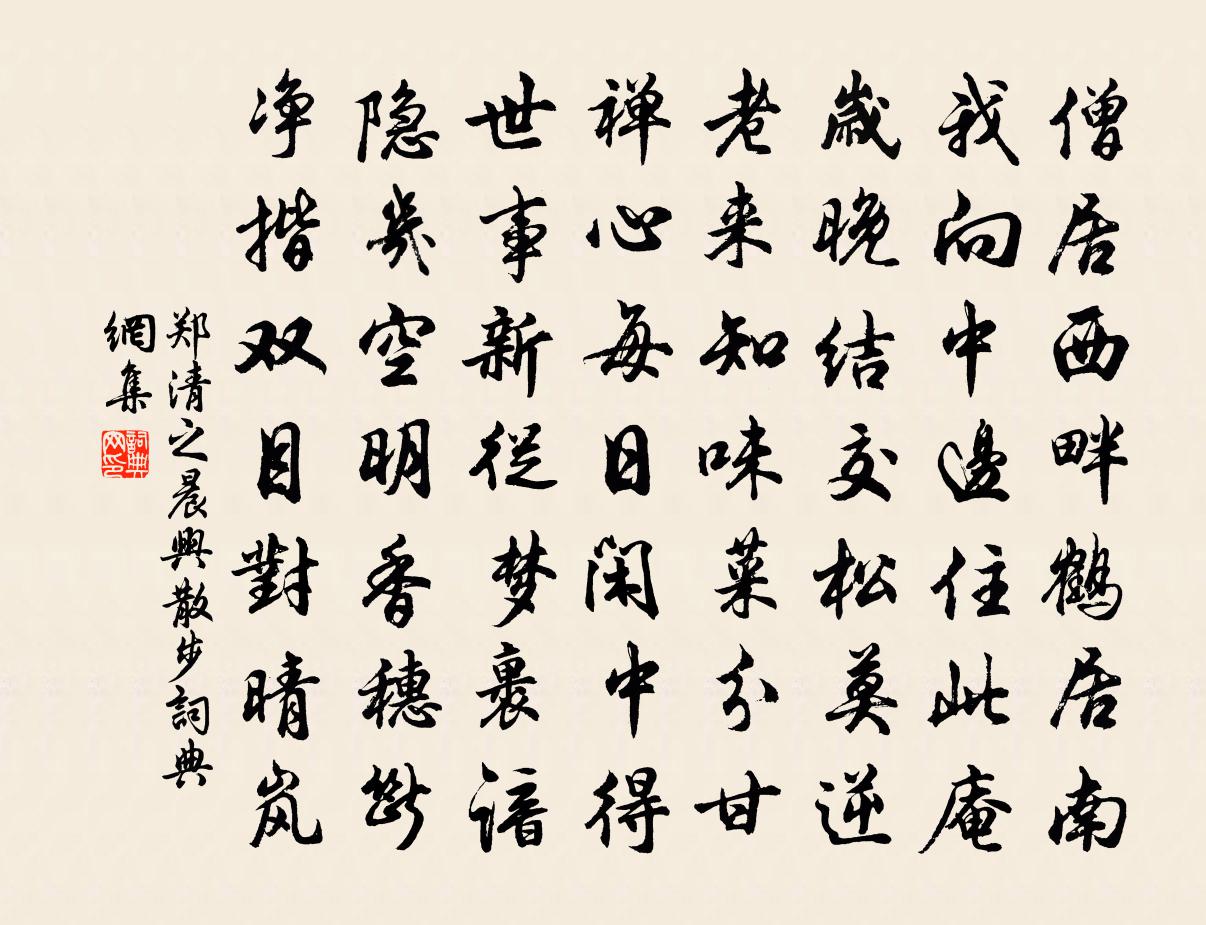 僧居西畔鹤居南
我向中邊住此庵
歳晚结交松莫逆
老来知味菜分甘
禅心每日闲中得
世事新従梦裏谙
隐几空明香穗断
净揩双目對晴岚
郑清之晨興散步詞典
網集
詞典网印